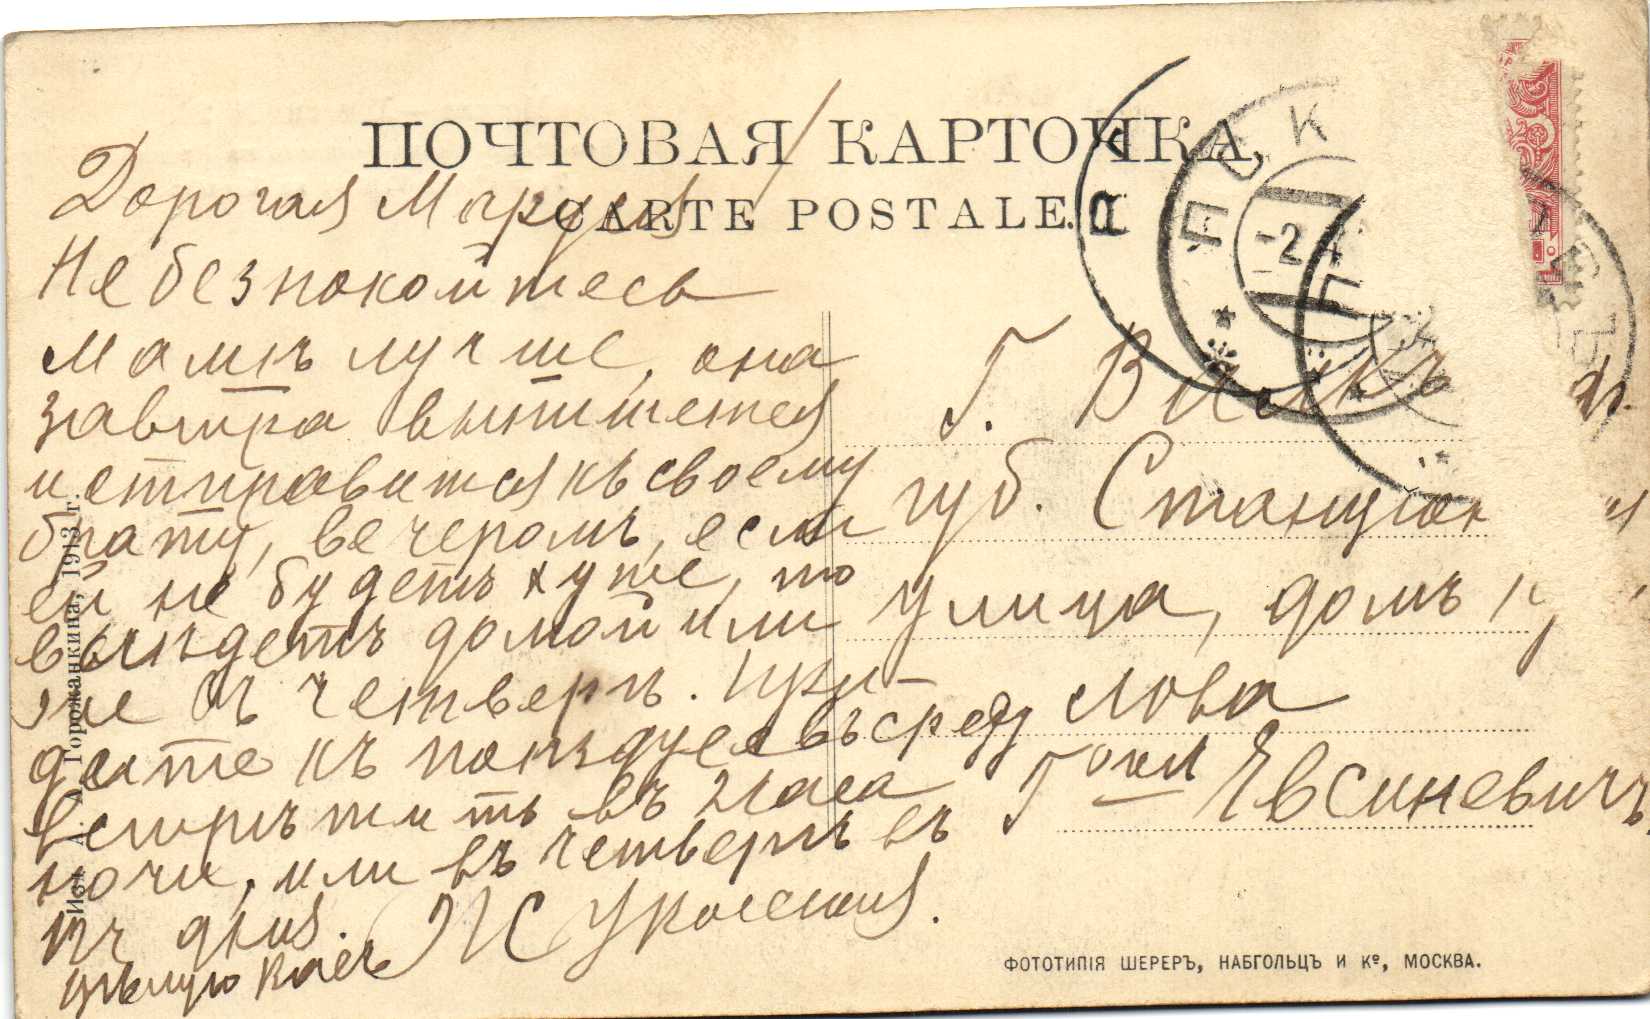 ПОЧТОВАЯ КАРТОЧКА
CARTE POSTALE.
Дорогая Маруся!
Не безпокойтесь
Мамѣ лучше, она
завтра выпишется
и отправится къ своему
брату, вечеромъ, если
ей не будетъ хуже, то
выѣдетъ домой или
же въ четвергъ. При-
дите къ поѣзду въ среду
встрѣтить въ 2 часа
ночи, или въ четвергъ въ
дня.
цѣлую Васъ
Г. Ви
губ. Станціон
улица, домъ
лова
Г-жѣ Евсиневичъ
-2.4
Изд. А. А. Горожанкина, 1913 г.
ФОТОТИПІЯ ШЕРЕРЪ, НАБГОЛЬЦЪ И Кº, МОСКВА.